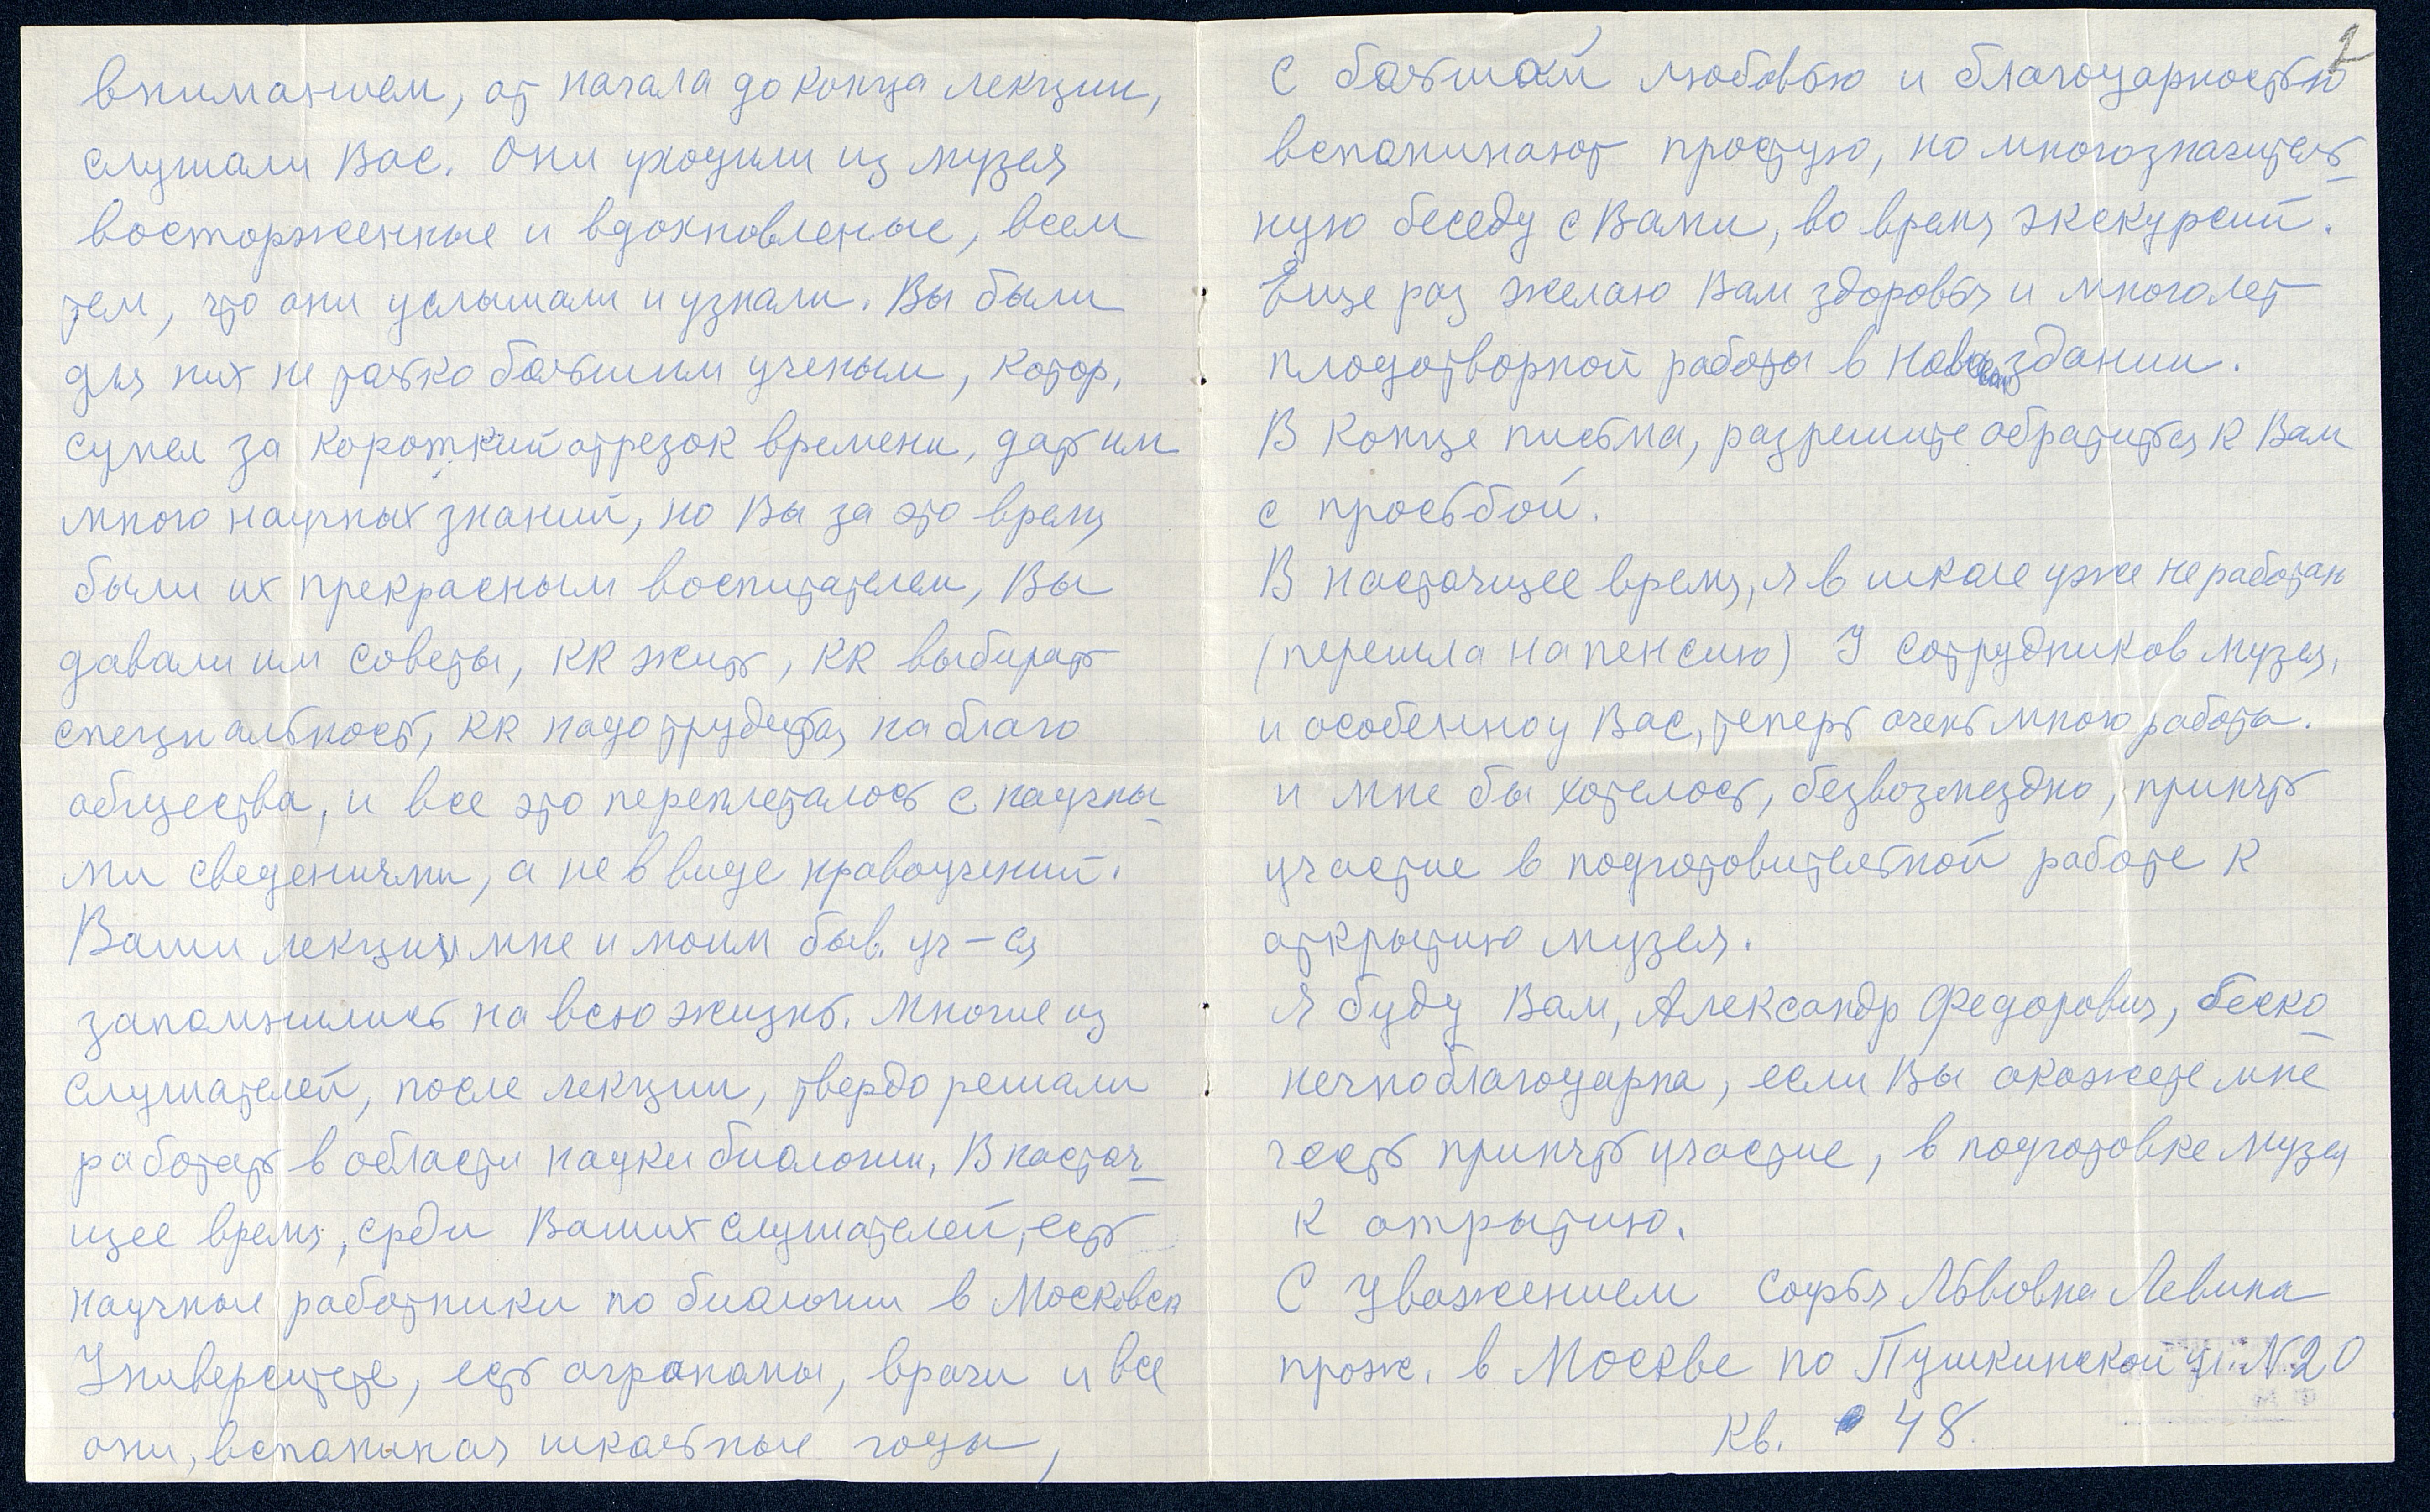 вниманием, от начала до конца лекции,
слушали Вас. Они уходили из музея
восторженные и вдохновленые, всем
тем, что они услышали и узнали. Вы были
для них не только большим ученым, котор.
сумел за короткий отрезок времени, дать им
много научных знаний, но Вы за это время
были их прекрасным воспитателем, Вы
давали им советы, кк жить, кк выбирать
специальность, кк надо трудиться на благо
общества, и все это переплеталось с научны-
ми сведениями, а не в виде нравоучений.
Ваши лекции мне и моим быв. уч-ся
запомнились на всю жизнь. Многие из
слушателей, после лекции, твердо решали
работать в области науки биологии. В настоя-
щее время, среди Ваших слушателей, есть
научные работники по биологии в Московск
Университете, есть агрономы, врачи и все
они, вспоминая школьные годы,
2
с большой любовью и благодарностью
вспоминают простую, но многозначитель-
ную беседу с Вами, во время экскурсий.
Еще раз желаю Вам здоровья и многолет
плодотворной работы в новом здании.
В конце письма, разрешите обратиться к Вам
с просьбой.
В настоящее время, я в школе уже не работаю
(перешла на пенсию) У сотрудников музея,
и особенно у Вас, теперь очень много работы.
и мне бы хотелось, безвозмездно, принять
участие в подготовительной работе к
открытию музея.
Я буду Вам, Александр Федорович, беско-
нечно благодарна, если Вы окажете мне
честь принять участие, в подготовке музея
к отрытию.
С уважением Софья Львовна Левина
прож. в Москве по Пушкинской ул. N 20
кв. 48